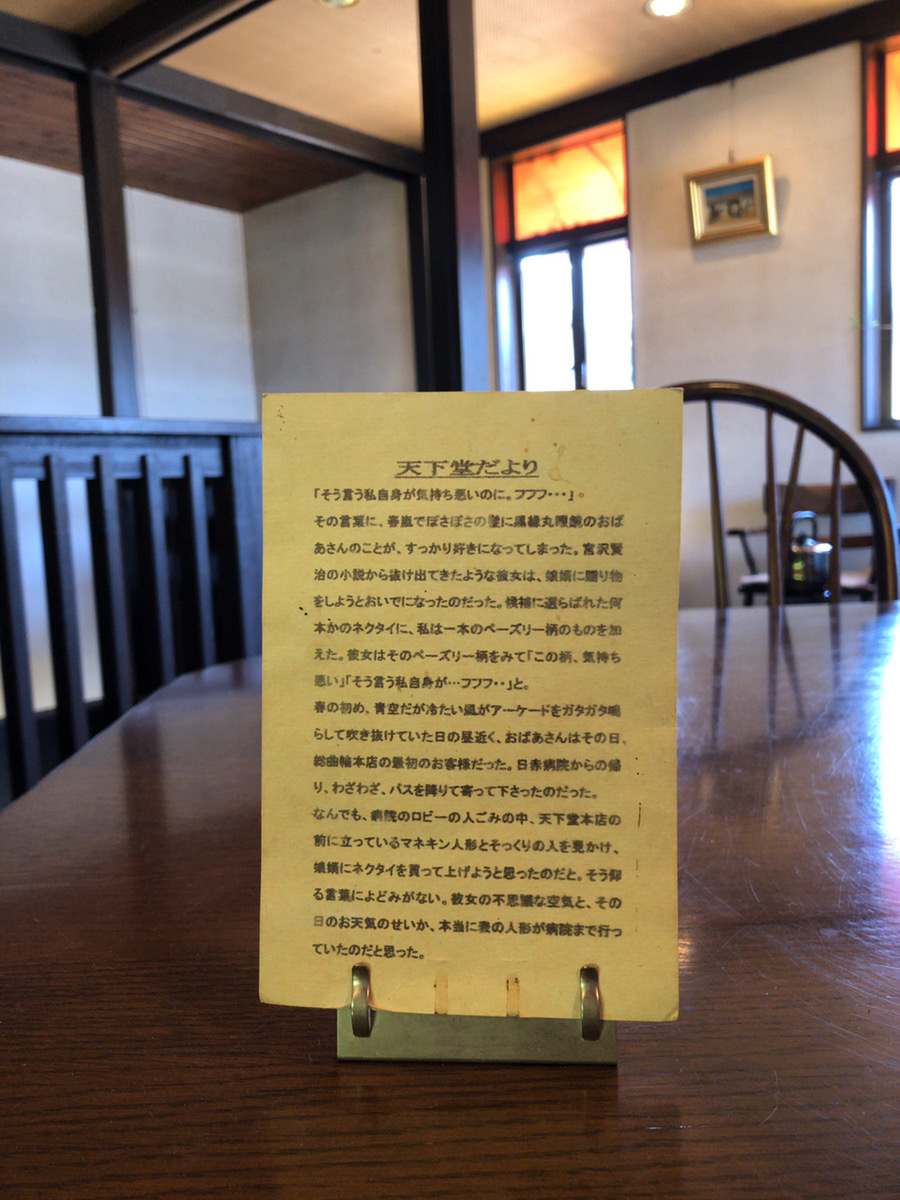 天下堂だより
「そう言う私自身が気持ち悪いのに。フフフ・・・」。
その言葉に、春嵐でぼさぼさの髪に黒縁丸眼鏡のおば
あさんのことが、すっかり好きになってしまった。宮沢賢
治の小説から抜け出てきたような彼女は、娘婿に贈り物
をしようとおいでになったのだった。候補に選らばれた何
本かのネクタイに、私は一本のペーズリー柄のものを加
えた。彼女はそのペーズリー柄をみて「この柄、気持ち
悪い」「そう言う私自身が…フフフ・・」と。
春の初め、青空だが冷たい風がアーケードをガタガタ鳴
らして吹き抜けていた日の昼近く、おばあさんはその日、
総曲輪本店の最初のお客様だった。日赤病院からの帰
り、わざわざ、バスを降りて寄って下さったのだった。
なんでも、病院のロビーの人ごみの中、天下堂本店の
前に立っているマネキン人形とそっくりの人を見かけ、
娘婿にネクタイを買って上げようと思ったのだと。そう仰
る言葉によどみがない。彼女の不思議な空気と、その
日のお天気のせいか、本当に表の人形が病院まで行っ
ていたのだと思った。